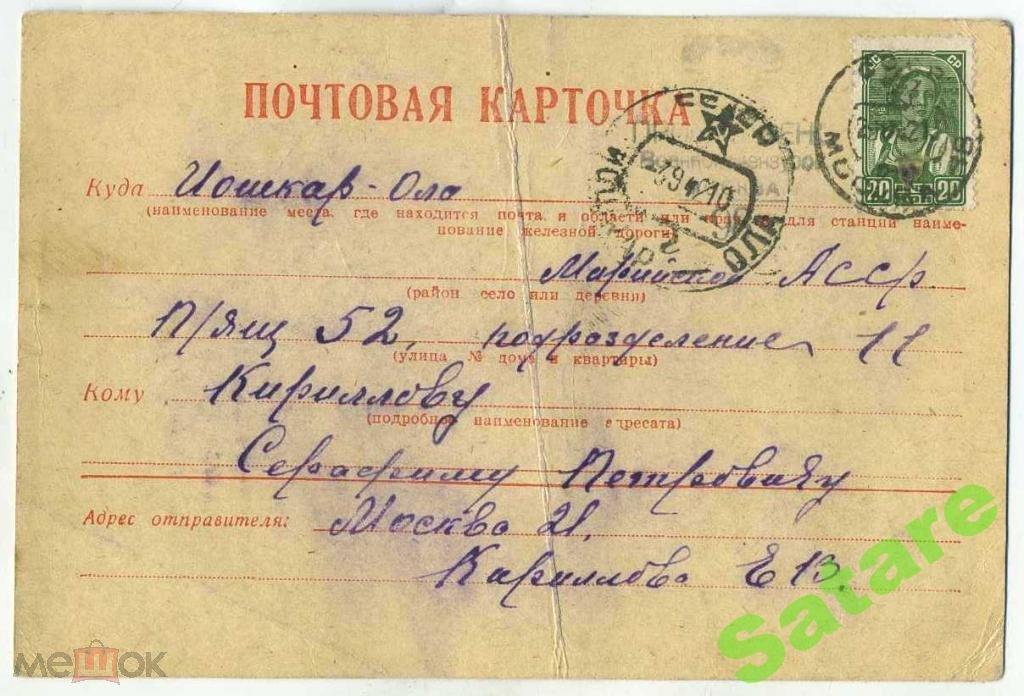 ПОЧТОВАЯ КАРТОЧКА
Куда Иошкар-Ола
(наименование места, где находится почта, и области или края, а для станций наиме-
нование железной дороги)
Марийской АССР
(район село или деревня)
П/ящ 52, подразделение 11
(улица № дома и квартиры)
Кому Кириллову
(подробное наименование адресата)
Серафиму Петровичу
Адрес отправителя: Москва 21,
Кириллова Е В.
СССР
20 20
МОСКВА
Satare
мешок